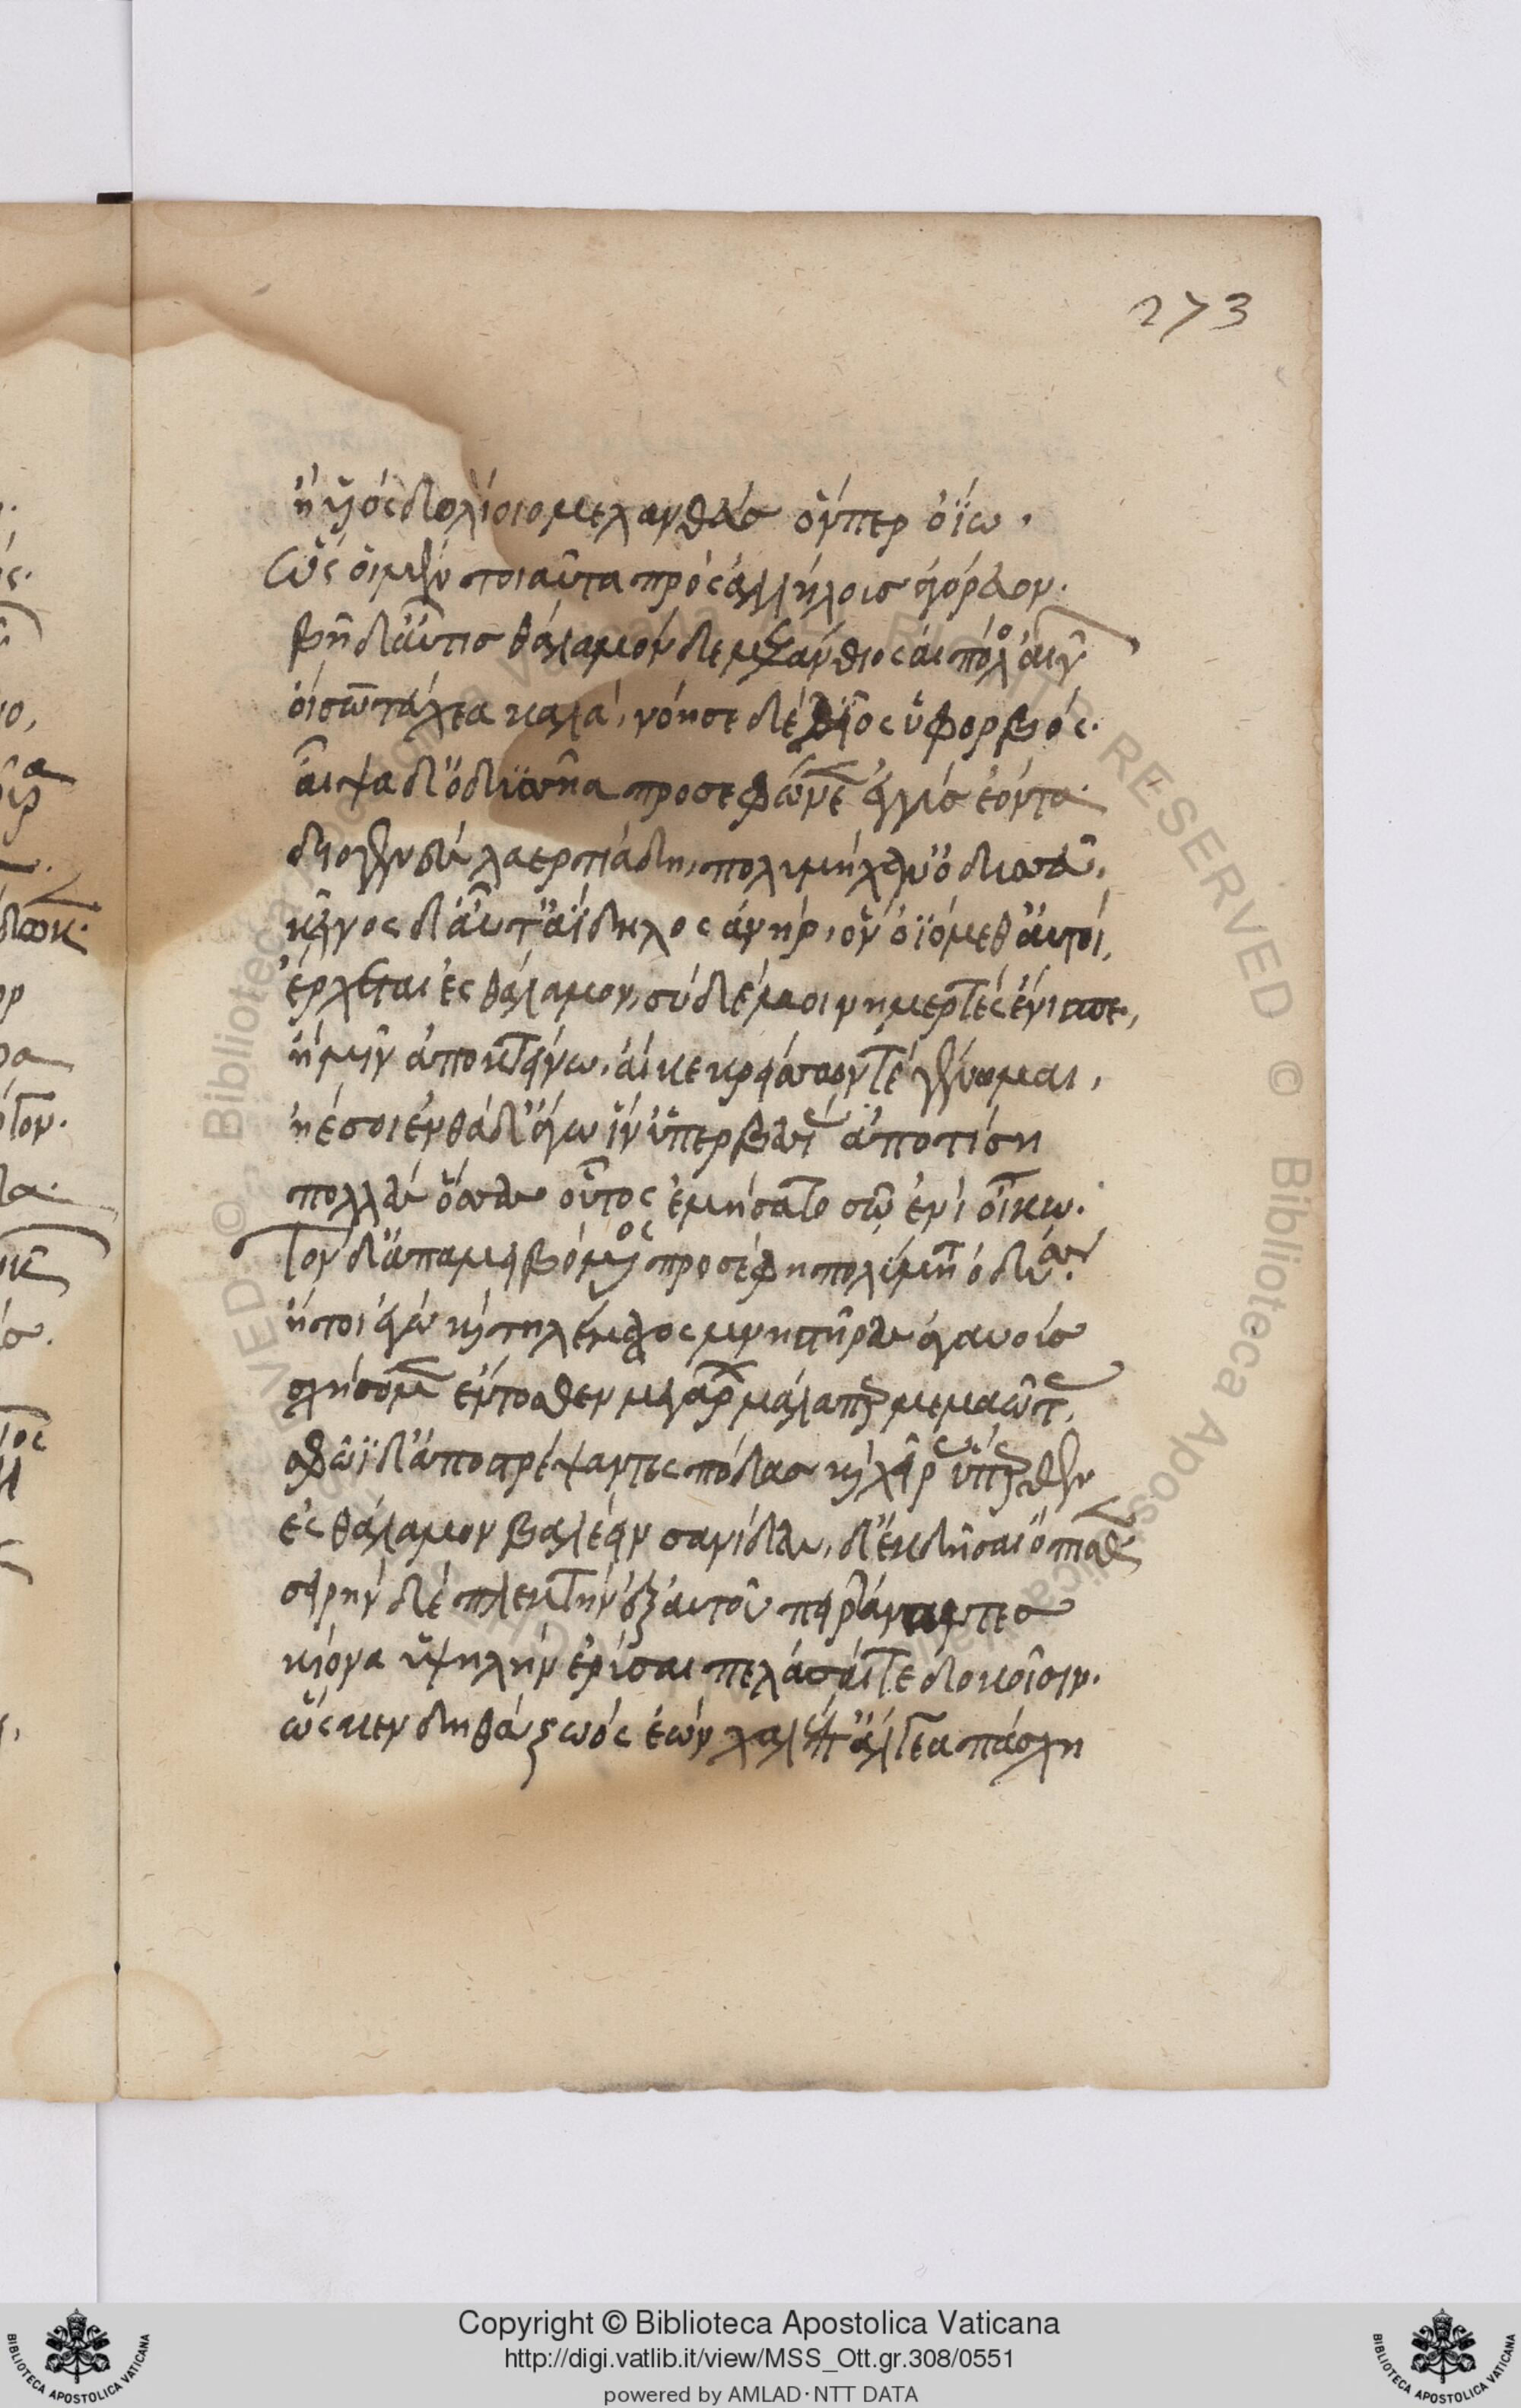 273
ἢ υἱὸς δολίοιο μελανθεὺς ὅνπερ ὀΐω.
ὣς οἱ μὲν τοιαῦτα πρὸς ἀλλήλους ἀγόρευον.
βῆ δ' αὖτις θάλαμον δὲ μελάνθιος αἰπόλος αἰγῶν
οἴσων τεύχεα καλά, νόησε δὲ δῖος ὑφορβός.
αἶψα δ' ὀδυσσῆα προσεφώνεεν ἐγγὺς ἐόντα.
διογενὲς λαερτιάδη, πολυμήχαν' ὀδυσσεῦ,
κεῖνος δ' αὖτ' ἀΐδηλος ἀνὴρ, ὃν ὀϊόμεθ' αὐτοί,
ἔρχεται ἐς θάλαμον, σὺ δέ μοι νημερτὲς ἔνισπε,
ἤ μιν ἀποκτείνω, αἴ κε κρείσσων τε γένωμαι,
ἦε σοὶ ἐνθάδ' ἄγω ἵν' ὑπερβασίας ἀποτίση
πολλὰς ὅσσας οὗτος ἐμήσατο σῶ ἐνὶ οἴκω.
Τὸν δ' ἀπαμειβόμενος προσέφη πολύμητις ὀδυσσεύς.
ἤτοι ἐγὼ καὶ τηλέμαχος μνηστῆρας ἀγαυοὺς
σχήσομεν ἔντοσθεν μεγάρων μάλα περ μεμαῶτας,
σφῶϊ δ' ἀποστρέψαντες πόδας καὶ χεῖρας ὕπερθεν
ἐς θάλαμον βαλέειν σανίδας, δ' ἐκδῆσαι ὄπισθεν
σειρὴν δὲ πλεκτὴν ἐξ αὐτοῦ πειρήναντες
κίον' ἀν' ὑψηλὴν ἐρύσαι πελάσαι τε δοκοῖσιν.
ὥς κεν δηθὰ ζωὸς ἐὼν χαλέπ' ἄλγεα πάσχη
Copyright © Biblioteca Apostolica Vaticana
http://digi.vatlib.it/view/MSS_Ott.gr.308/0551
powered by AMLAD·NTT DATA